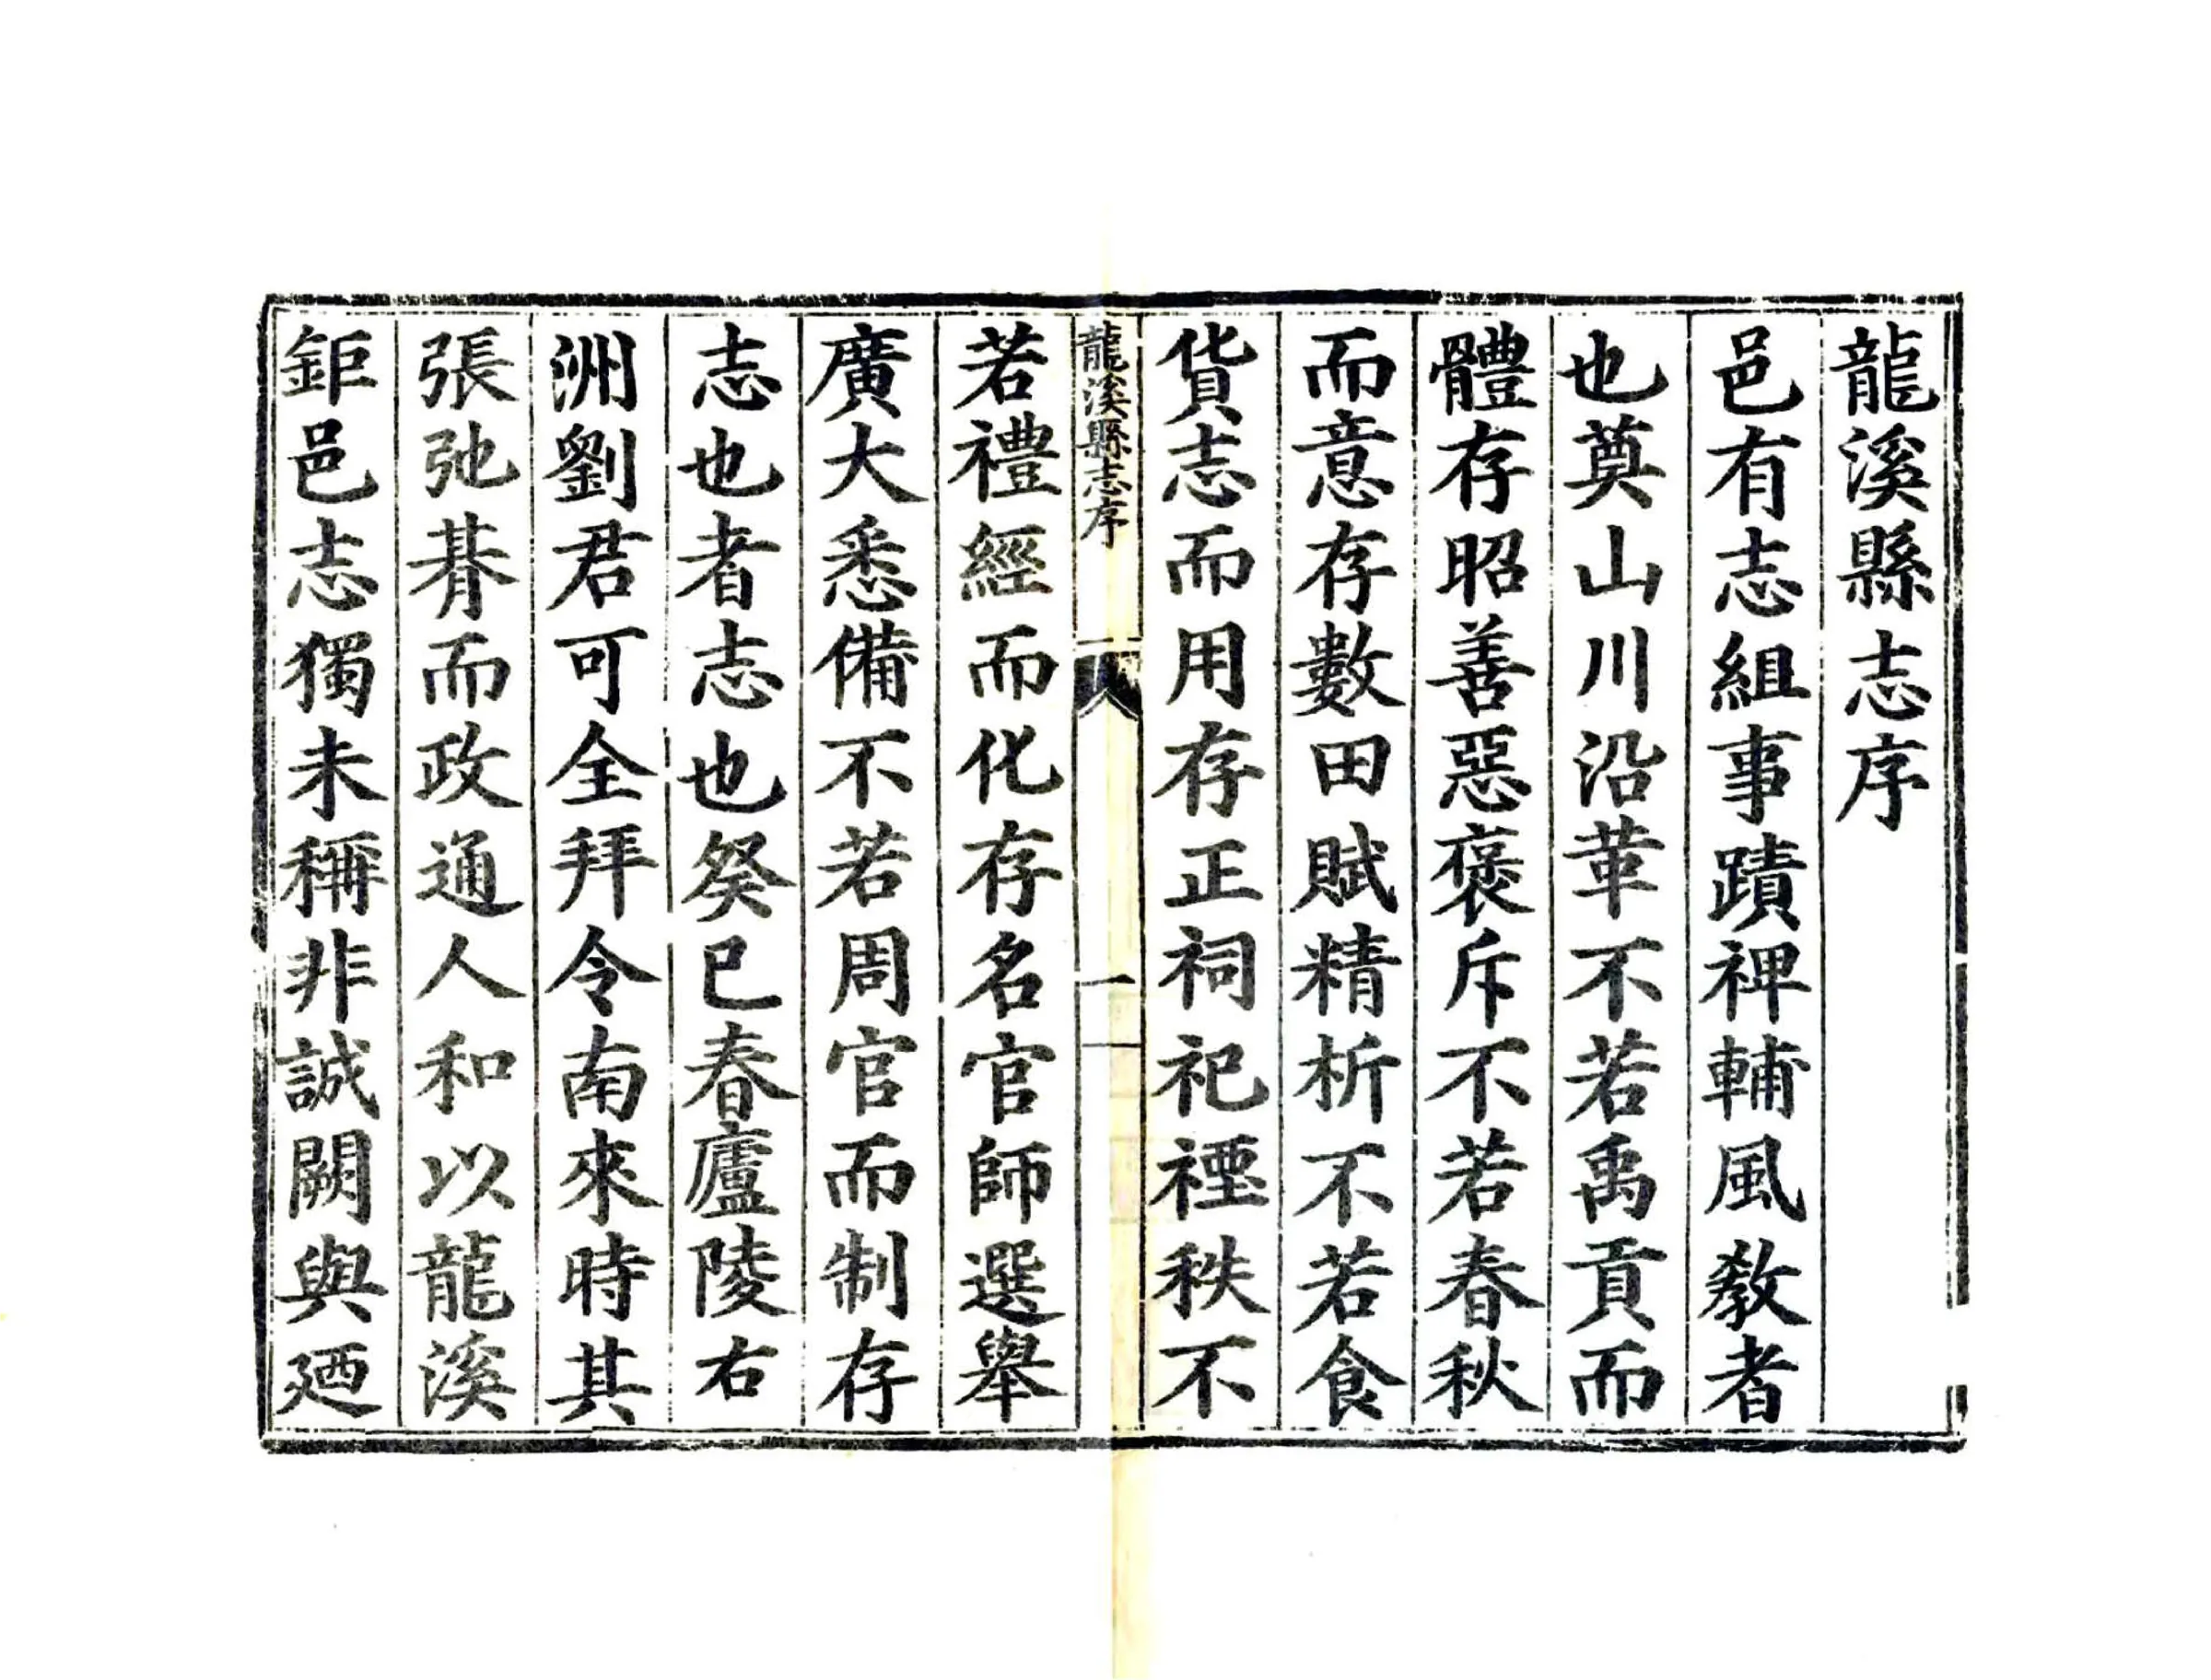 龍溪縣志序
邑有志組事蹟裨輔風敎者
也奠山川沿革不若禹貢而
體存昭善惡褒斥不若春秋
而意存數田賦精析不若食
貨志而用存正祠祀禋秩不
龍溪縣志序
一
若禮經而化存名官師選舉
廣大悉備不若周官而制存
志也者志也癸巳春廬陵右
洲劉君可全拜令南來時其
張弛朞而政通人和以龍溪
鉅邑志獨未稱非誠闕與廼